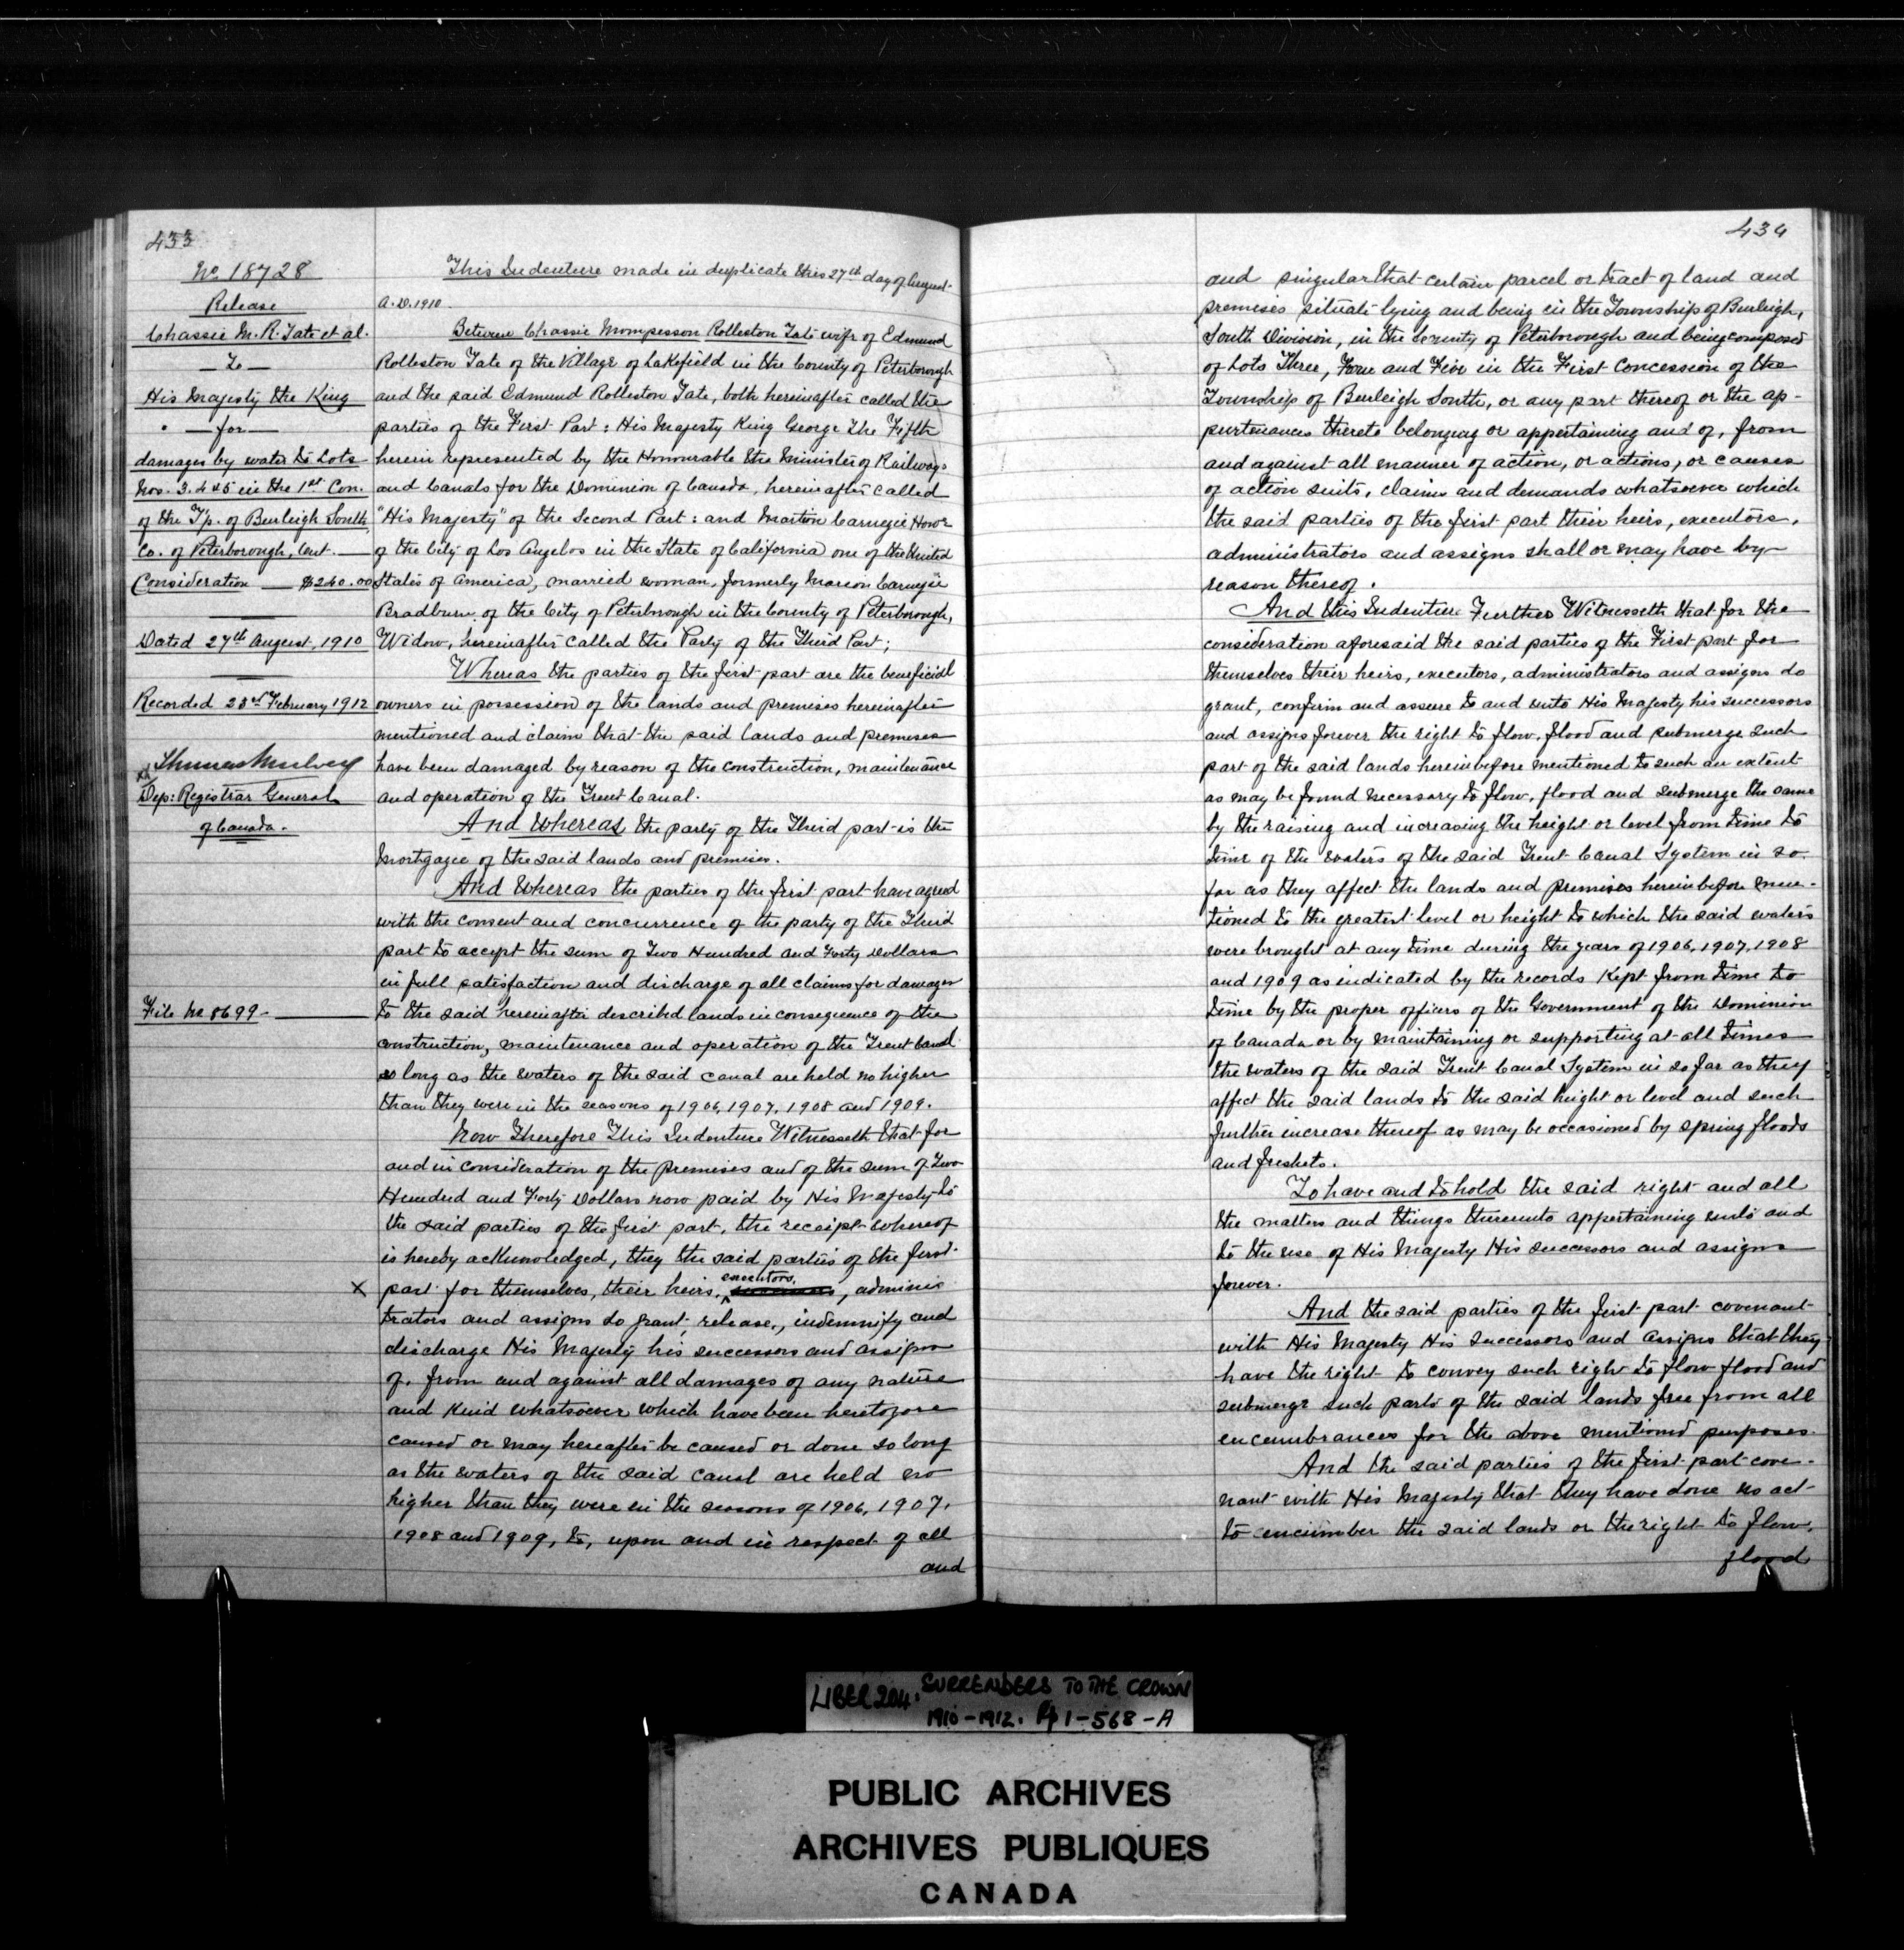 433
No. 18728
Release
Chassie M. R. Tate et al.
— To —
His Majesty the King
— for —
damages by water to Lots
Nos. 3. 4 & 5 in the 1st Con.
of the Tp. of Burleigh South,
Co. of Peterborough, Ont.
Consideration — $240.00
Dated 27th August, 1910
Recorded 23rd February 1912
Thomas Mulvey
Dep: Registrar General
of Canada.
File No 8699
This Indenture made in duplicate this 27th day of August
A.D. 1910.
Between Chassie Mompesson Rolleston Tate wife of Edmund
Rolleston Tate of the Village of Lakefield in the County of Peterborough
and the said Edmund Rolleston Tate, both hereinafter called the
parties of the First Part: His Majesty King George The Fifth
herein represented by the Honourable the Minister of Railways
and Canals for the Dominion of Canada, hereinafter called
"His Majesty" of the Second Part: and Marion Carnegie Howe
of the City of Los Angelos in the State of California one of the United
States of America, married woman, formerly Marion Carnegie
Bradburn of the City of Peterborough in the County of Peterborough,
Widow, hereinafter called the Party of the Third Part;
Whereas the parties of the first part are the beneficial
owners in possession of the lands and premises hereinafter
mentioned and claim that the said lands and premises
have been damaged by reason of the construction, maintenance
and operation of the Trent Canal.
And Whereas the party of the Third part is the
Mortgagee of the said lands and premises.
And Whereas the parties of the first part have agreed
with the consent and concurrence of the party of the Third
part to accept the sum of Two Hundred and Forty Dollars
in full satisfaction and discharge of all claims for damages
to the said hereinafter described lands in consequence of the
construction, maintenance and operation of the Trent Canal
so long as the waters of the said canal are held no higher
than they were in the seasons of 1906, 1907, 1908 and 1909.
Now Therefore This Indenture Witnesseth that for
and in consideration of the premises and of the sum of Two
Hundred and Forty Dollars now paid by His Majesty to
the said parties of the first part, the receipt whereof
is hereby acknowledged, they the said parties of the first
x part for themselves, their heirs, executors, adminis
trators and assigns do grant, release, indemnify and
discharge His Majesty his successors and assigns
of, from and against all damages of any nature
and kind whatsoever which have been heretofore
caused or may hereafter be caused or done so long
as the waters of the said canal are held no
higher than they were in the seasons of 1906, 1907,
1908 and 1909, to, upon and in respect of all
and
434
and singular that certain parcel or tract of land and
premises situate lying and being in the Township of Burleigh,
South Division, in the County of Peterborough and being composed
of Lots Three, Four and Five in the First Concession of the
Township of Burleigh South, or any part thereof or the ap-
purtenances thereto belonging or appertaining and of, from
and against all manner of action, or actions, or causes
of action suits, claims and demands whatsoever which
the said parties of the first part their heirs, executors,
administrators and assigns shall or may have by
reason thereof.
And this Indenture Further Witnesseth that for the
consideration aforesaid the said parties of the First part for
themselves their heirs, executors, administrators and assigns do
grant, confirm and assure to and unto His Majesty his successors
and assigns forever the right to flow, flood and submerge such
part of the said lands hereinbefore mentioned to such an extent
as may be found necessary to flow, flood and submerge the same
by the raising and increasing the height or level from time to
time of the waters of the said Trent Canal System in so
far as they affect the lands and premises hereinbefore men-
tioned to the greatest level or height to which the said waters
were brought at any time during the years of 1906, 1907, 1908
and 1909 as indicated by the records kept from time to
time by the proper officers of the Government of the Dominion
of Canada or by maintaining or supporting at all times
the waters of the said Trent Canal System in so far as they
affect the said lands to the said height or level and such
further increase thereof as may be occasioned by spring floods
and freshets.
To have and to hold the said right and all
the matters and things thereunto appertaining unto and
to the use of His Majesty His successors and assigns
forever.
And the said parties of the first part covenant
with His Majesty His Successors and Assigns that they
have the right to convey such right to flow flood and
submerge such parts of the said lands free from all
encumbrances for the above mentioned purposes.
And the said parties of the first part cove-
nant with His Majesty that they have done no act
to encumber the said lands or the right to flow,
flood
LIBER 204: SURRENDERS TO THE CROWN
1910-1912. Pp 1-568-A
PUBLIC ARCHIVES
ARCHIVES PUBLIQUES
CANADA